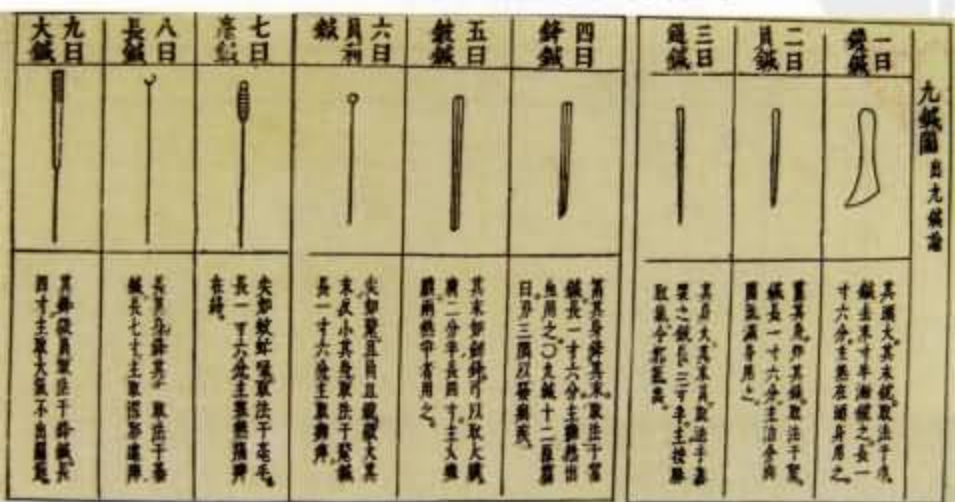 九鍼圖 出九鍼論
一曰
鑱鍼
其頭大其末銳取法于巾
鍼去末寸半漸銳之長一
寸六分主熱在頭身用之
二曰
員鍼
鍼長一寸六分主治分肉
間氣滿身用之
三曰
鍉鍼
其身大其末員取法于黍
粟之銳長三寸半主按脉
取氣令邪氣出
四曰
鋒鍼
筩其身鋒其末取法于絮
鍼長一寸六分主癰熱出
血用之〇九鍼十二原篇
曰刃三隅以發痼疾
五曰
鈹鍼
其末如劍鋒可以取大膿
廣二分半長四寸主大癰
膿兩熱爭者用之
六曰
員利
鍼
尖如氂且員且銳微大其
末反小其身取法于氂鍼
長一寸六分主取癰痹
七曰
毫鍼
尖如蚊虻喙取法于毫毛
長一寸六分主寒熱痛痹
在絡
八曰
長鍼
長其身鋒其末取法于綦
鍼長七寸主取深邪遠痹
九曰
大鍼
其鋒微員取法于鋒鍼長
四寸主取大氣不出關節